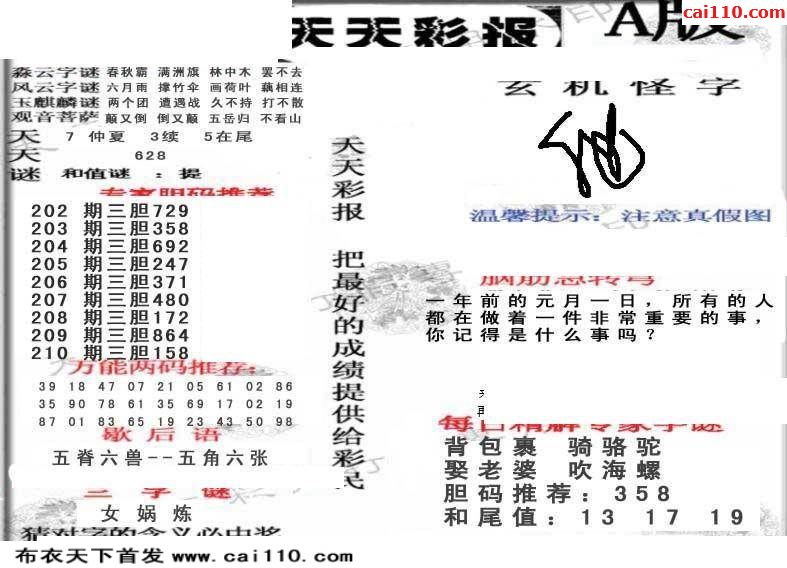 cai110.com
天天彩报
A版
森云字谜 春秋霸 满洲旗 林中木 罢不去
风云字谜 六月雨 撑竹伞 画荷叶 藕相连
玉麒麟谜 两个团 遭遇战 久不持 打不散
观音菩萨 颠又倒 倒又颠 五岳归 不看山
天 7 仲夏 3续 5在尾
天 628
谜 和值谜 :提
专家胆码推荐
202 期三胆729
203 期三胆358
204 期三胆692
205 期三胆247
206 期三胆371
207 期三胆480
208 期三胆172
209 期三胆864
210 期三胆158
万能两码推荐:
39 18 47 07 21 05 61 02 86
35 90 78 61 35 69 17 02 19
87 01 83 65 19 23 43 50 98
歇后语
五脊六兽--五角六张
三字谜
女娲炼
猜对字的含义必中奖
天天彩报 把最好的成绩提供给彩民
玄机怪字
温馨提示: 注意真假图
脑筋急转弯
一年前的元月一日，所有的人
都在做着一件非常重要的事，
你记得是什么事吗？
每日精解专家字谜
背包裹 骑骆驼
娶老婆 吹海螺
胆码推荐: 358
和尾值: 13 17 19
布衣天下首发 www.cai110.com